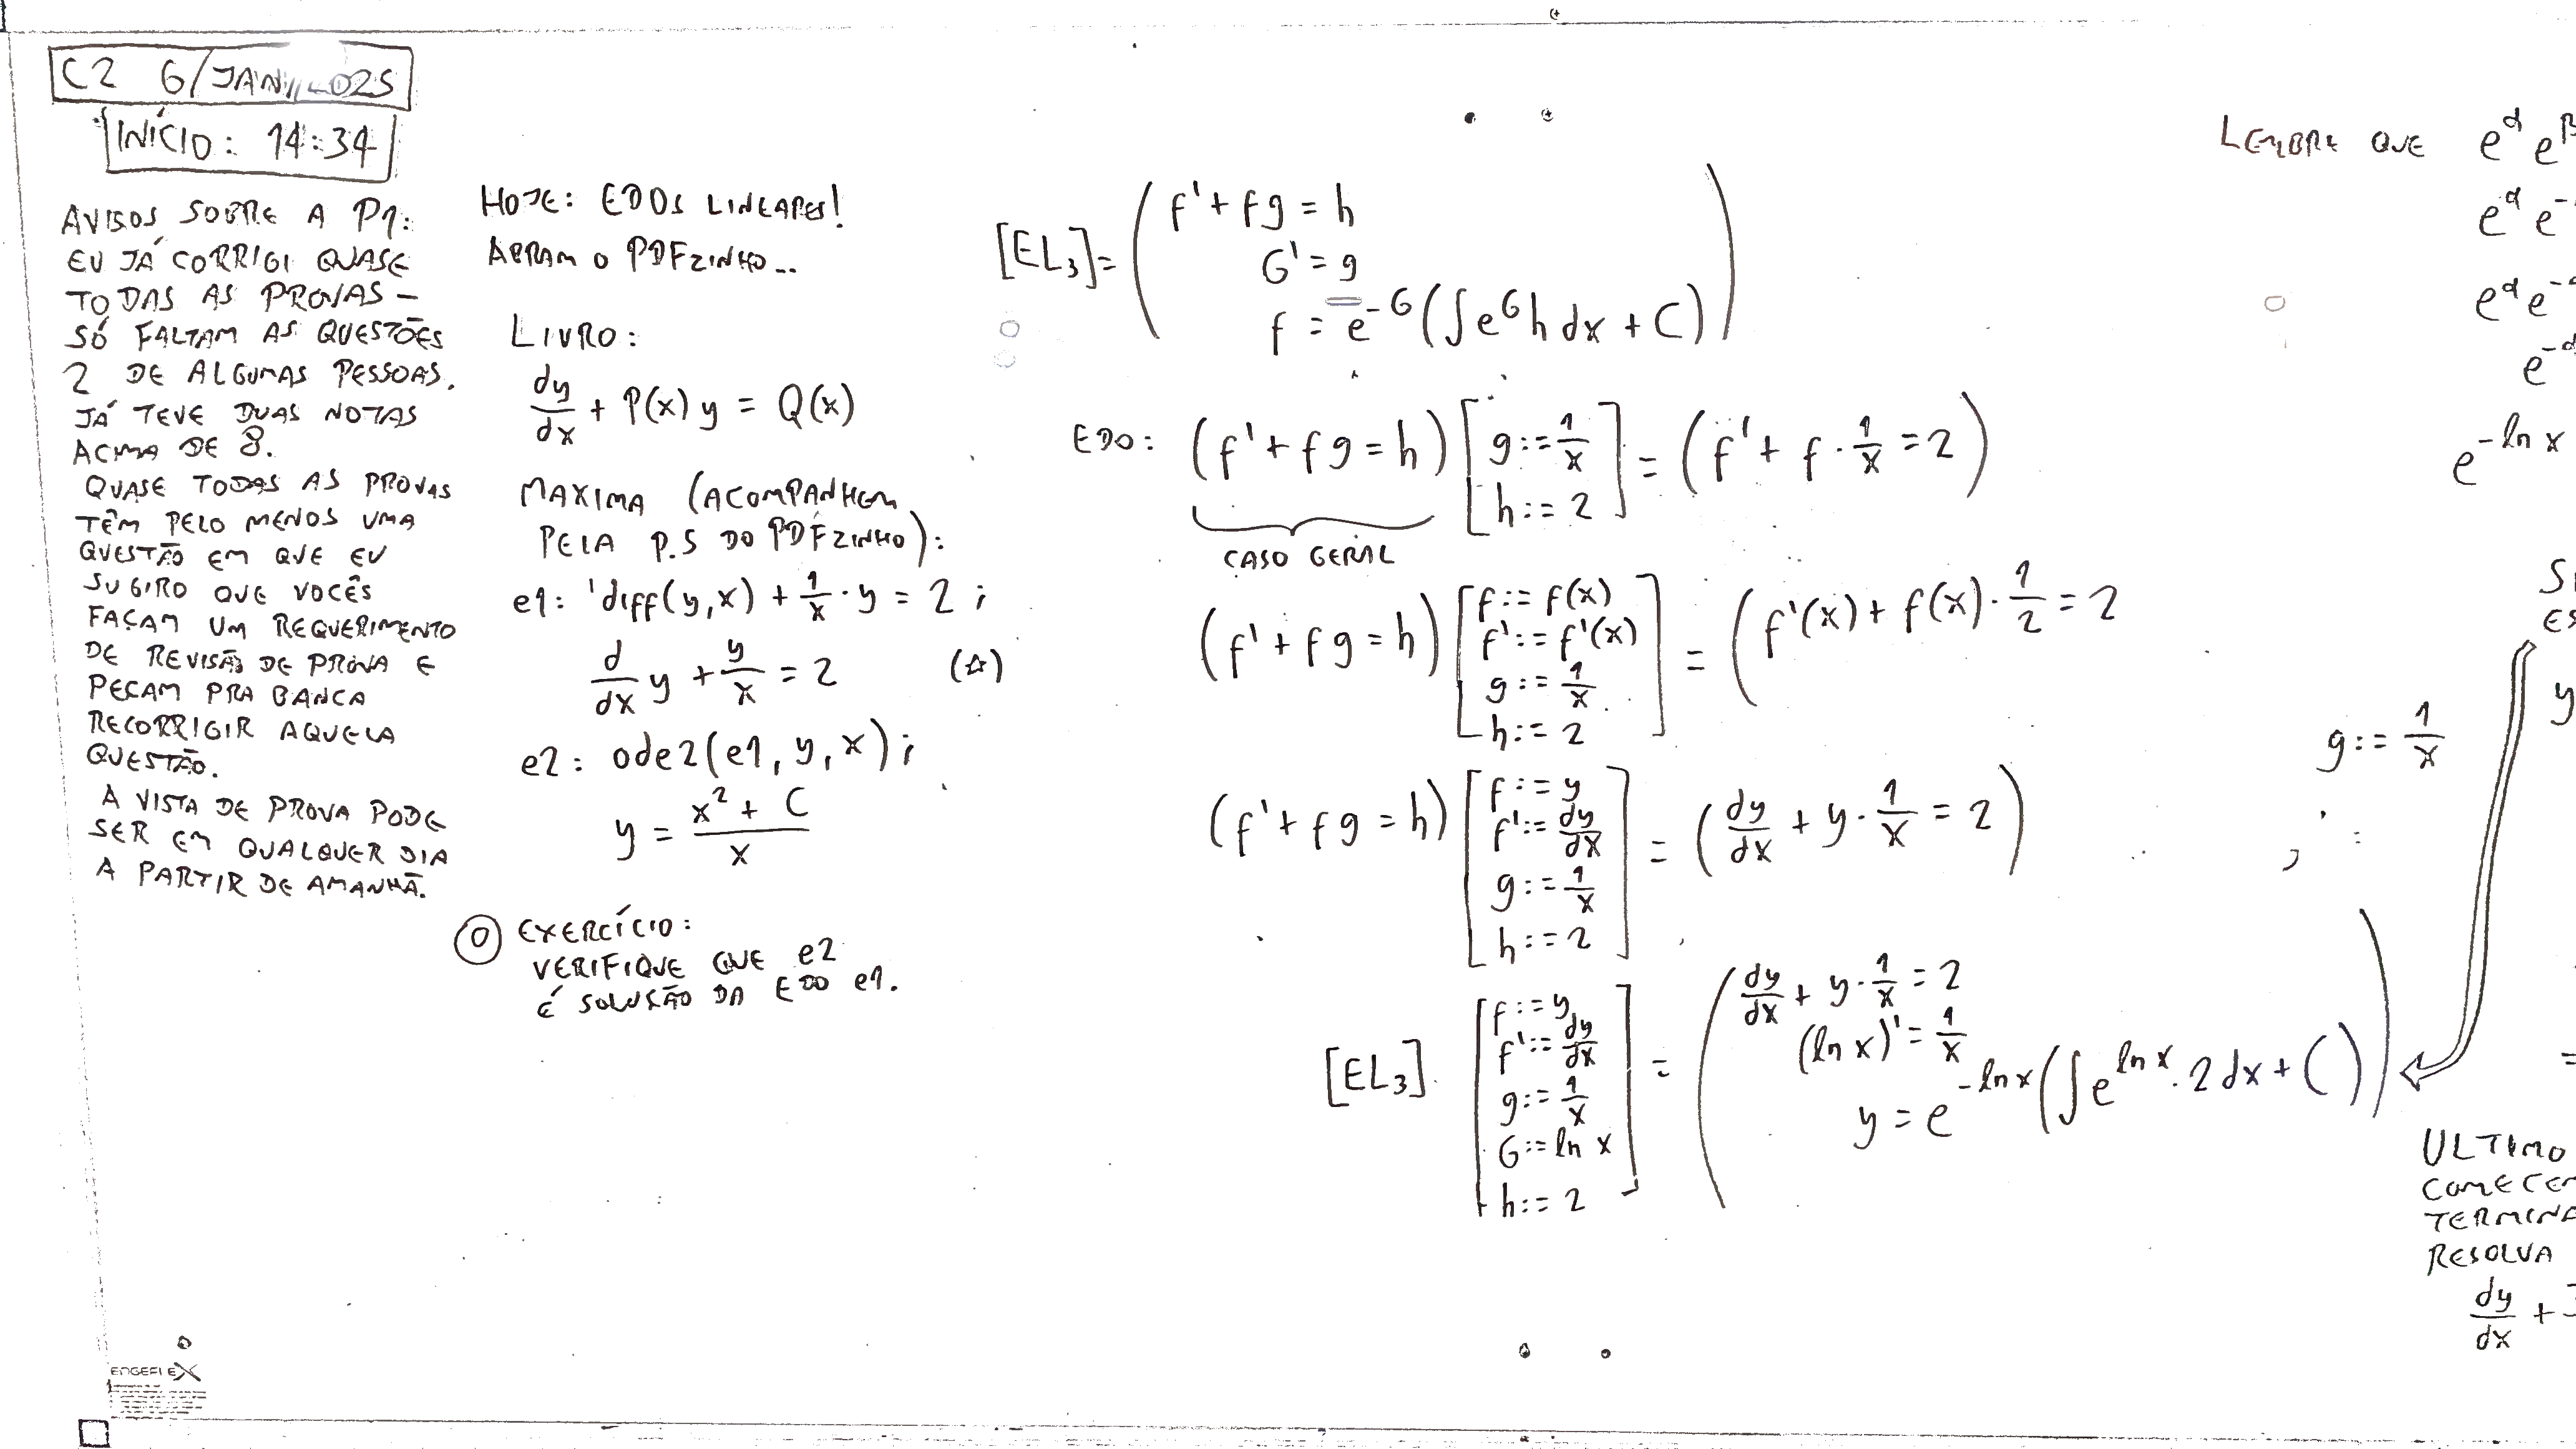 C2 6/JAN/2025
INÍCIO: 14:34
AVISOS SOBRE A P1:
EU JÁ CORRIGI QUASE
TODAS AS PROVAS –
SÓ FALTAM AS QUESTÕES
2 DE ALGUMAS PESSOAS.
JÁ TEVE DUAS NOTAS
ACMA DE 8.
QUASE TODAS AS PROVAS
TÊM PELO MENOS UMA
QUESTÃO EM QUE EU
SUGIRO QUE VOCÊS
FAÇAM UM REQUERIMENTO
DE REVISÃO DE PROVA E
PEÇAM PRA BANCA
RECORRIGIR AQUELA
QUESTÃO.
A VISTA DE PROVA PODE
SER EM QUALQUER DIA
A PARTIR DE AMANHÃ.
HOJE: EDOS LINEARES!
ABRAM O PDFZINHO..
LIVRO:
dy/dx + P(x) y = Q(x)
MAXIMA (ACOMPANHEM
PELA P.5 DO PDFZINHO):
e1: 'diff(y,x) + 1/x · y = 2;
d/dx y + y/x = 2 (☆)
e2: ode2(e1, y, x);
y = (x² + C)/x
⓪ EXERCÍCIO:
VERIFIQUE QUE e2
É SOLUÇÃO DA EDO e1.
[EL₃] = ( f' + fg = h
G' = g
f = e^{-G} (∫ e^G h dx + C) )
EDO: (f' + fg = h) [ g := 1/x
h := 2 ] = (f' + f · 1/x = 2)
CASO GERAL
(f' + fg = h) [ f := f(x)
f' := f'(x)
g := 1/x
h := 2 ] = (f'(x) + f(x) · 1/2 = 2
(f' + fg = h) [ f := y
f' := dy/dx
g := 1/x
h := 2 ] = (dy/dx + y · 1/x = 2)
[EL₃] [ f := y
f' := dy/dx
g := 1/x
G := ln x
h := 2 ] = ( dy/dx + y · 1/x = 2
(ln x)' = 1/x
y = e^{-ln x} (∫ e^{ln x} · 2 dx + C) )
LEMBRE QUE e^α e^β
e^α e^-
e^α e^-
e^-α
e^{-ln x}
g := 1/x
y
=
ULTIMO
COMECEM
TERMINA
RESOLVA
dy/dx +
ENGEFLEX